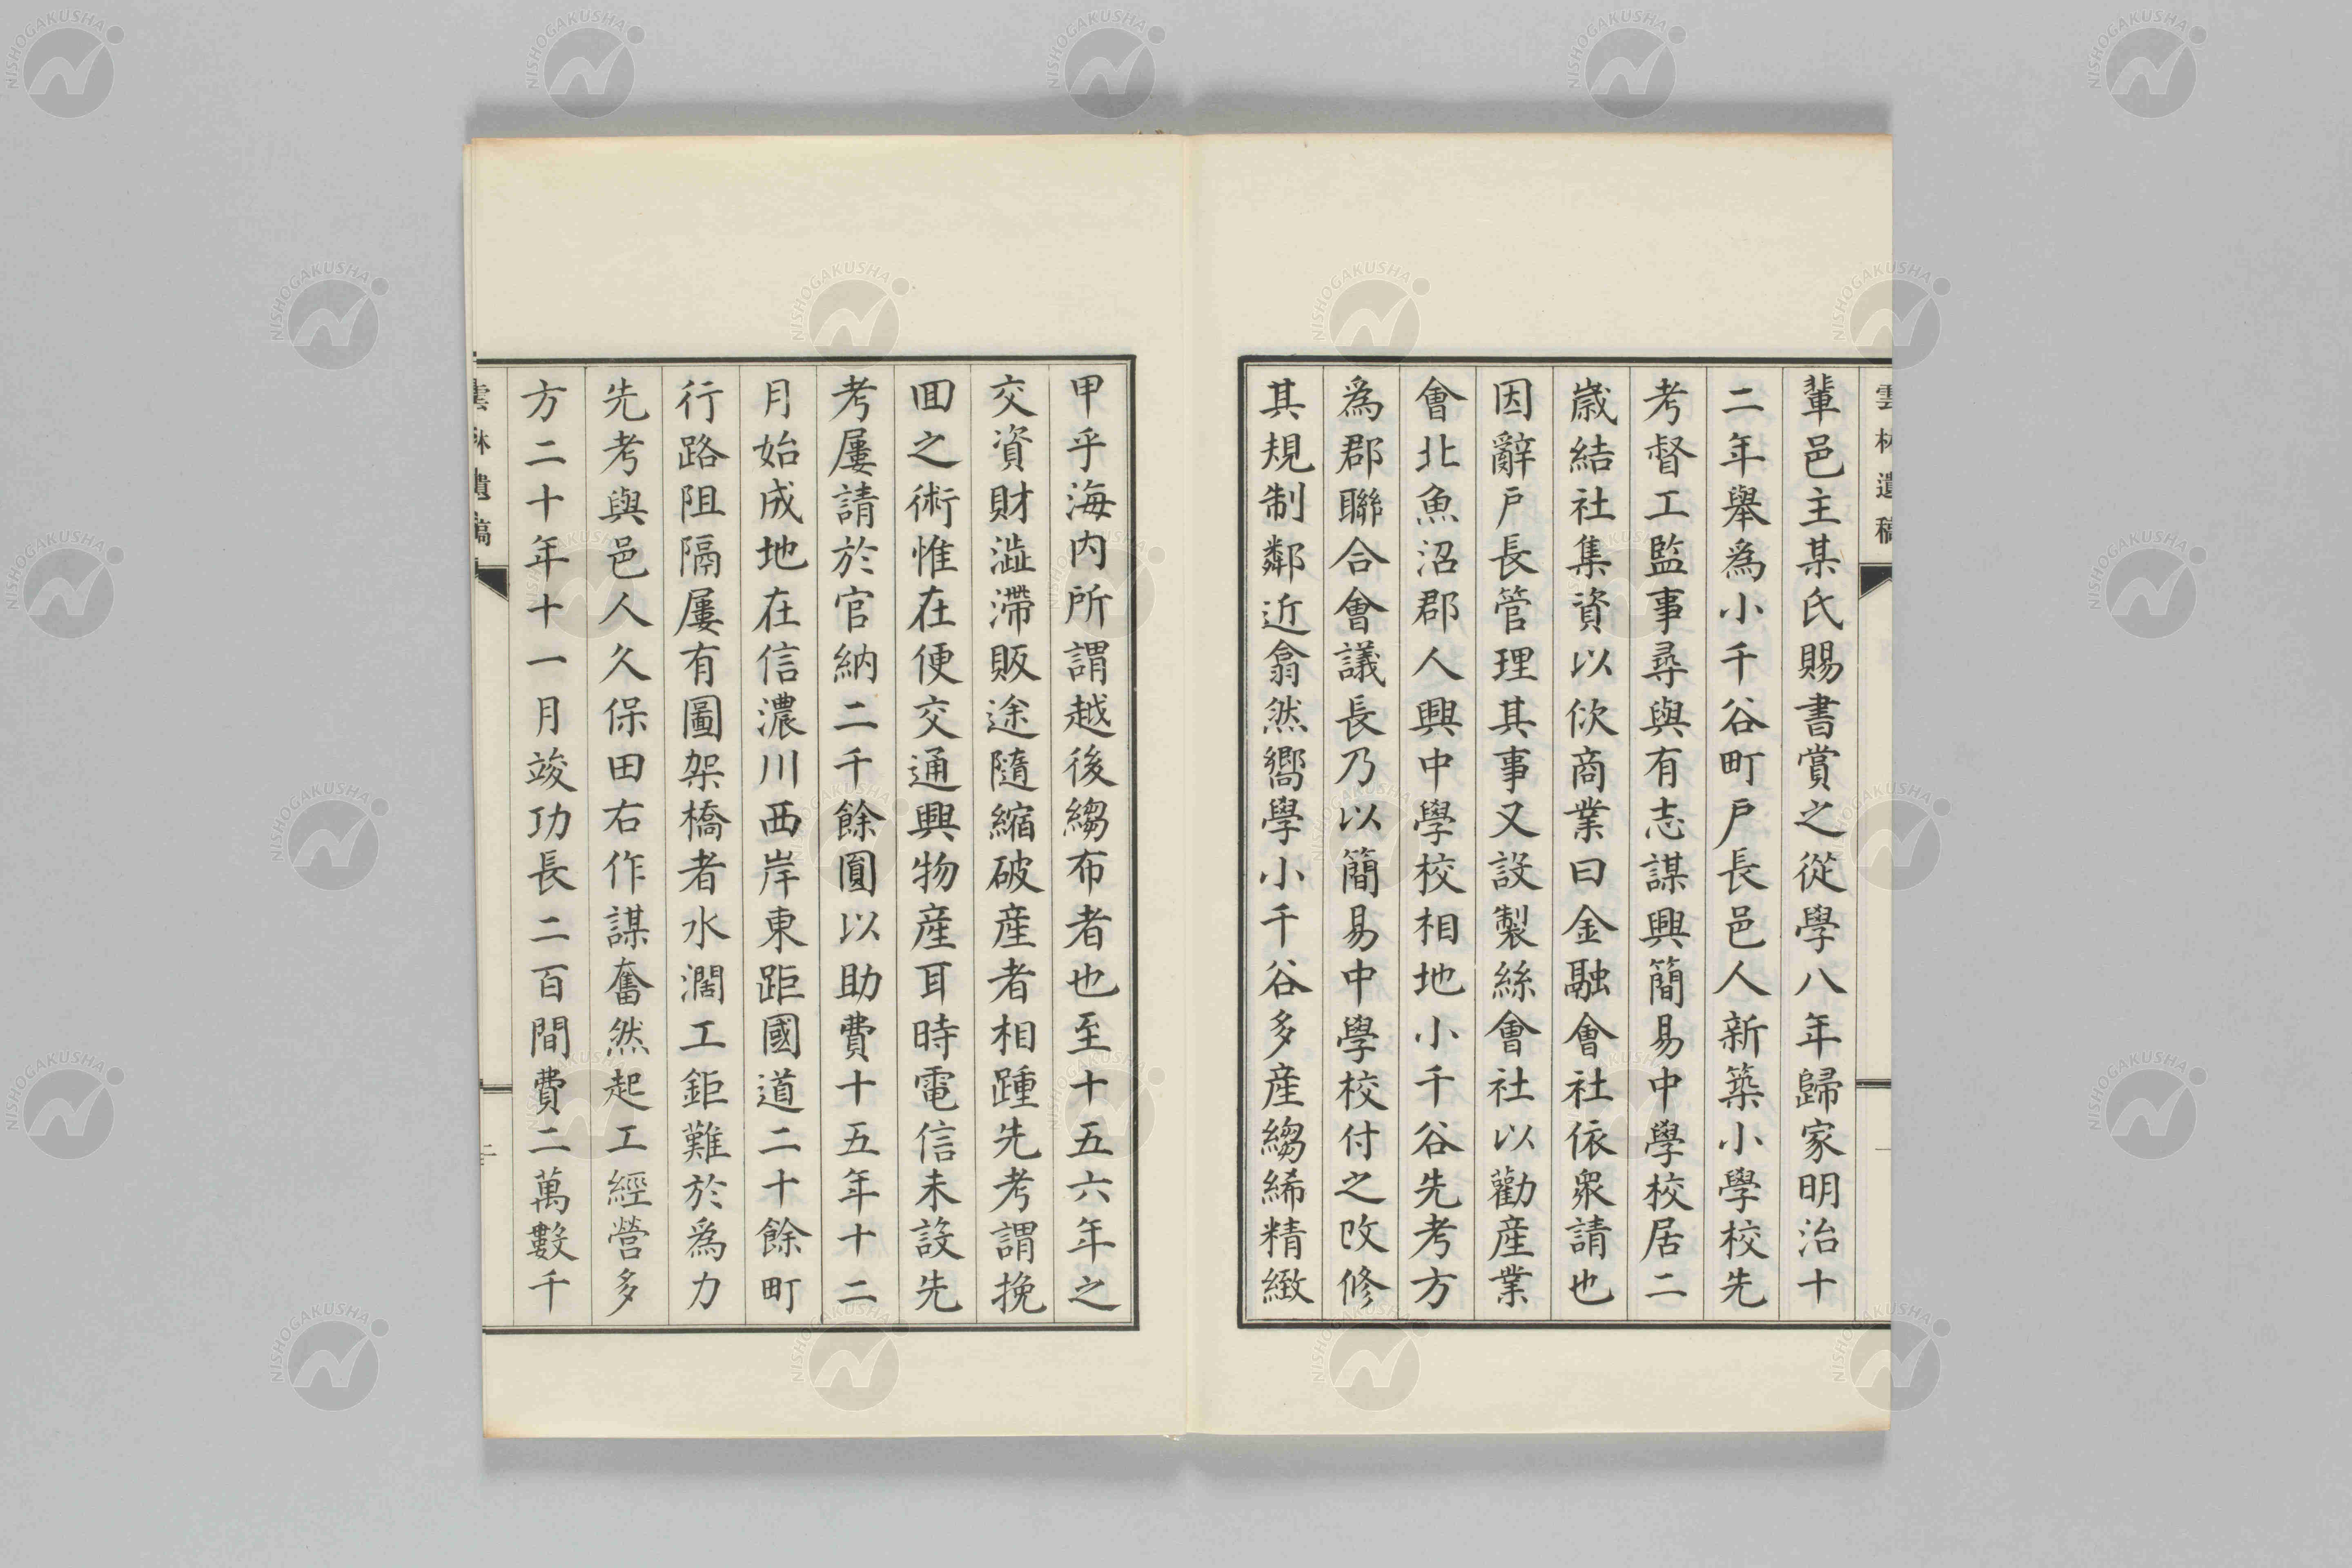 雲林遺稿
一
輩邑主某氏賜書賞之從學八年歸家明治十
二年舉為小千谷町戶長邑人新築小學校先
考督工監事尋與有志謀興簡易中學校居二
歲結社集資以佽商業曰金融會社依衆請也
因辭戶長管理其事又設製絲會社以勸産業
會北魚沼郡人興中學校相地小千谷先考方
為郡聯合會議長乃以簡易中學校付之改修
其規制鄰近翕然嚮學小千谷多産縐絺精緻
甲乎海内所謂越後縐布者也至十五六年之
交資財澁滯販途隨縮破産者相踵先考謂挽
回之術惟在便交通興物産耳時電信未設先
考屢請於官納二千餘圓以助費十五年十二
月始成地在信濃川西岸東距國道二十餘町
行路阻隔屢有圖架橋者水濶工鉅難於為力
先考與邑人久保田右作謀奮然起工經營多
方二十年十一月竣功長二百間費二萬數千
雲林遺稿
二
NISHOGAKUSHA